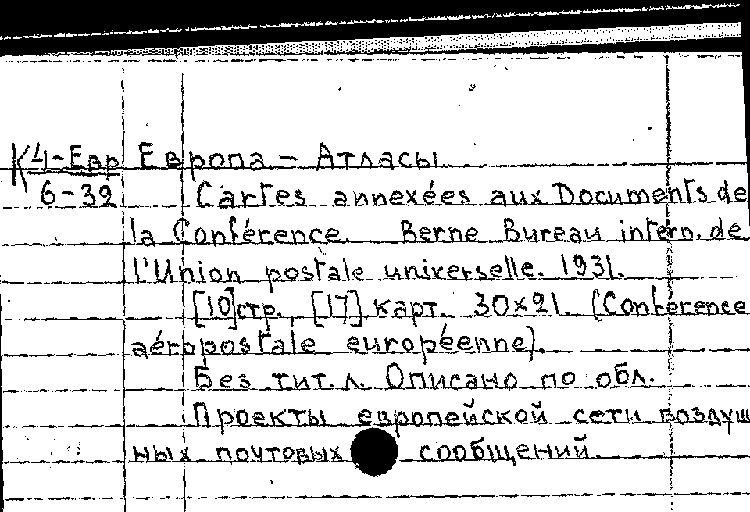 К4-Евр Европа - Атласы
6-39 Cartes annexées aux Documents de
la Conférence. Berne Bureau intern. de
l'Union postale universelle. 1931.
[10]стр. [17] карт. 30×21. (Conférence
aéropostale européenne).
Без тит. л. Описано по обл.
Проекты европейской сети воздуш
ных почтовых сообщений.